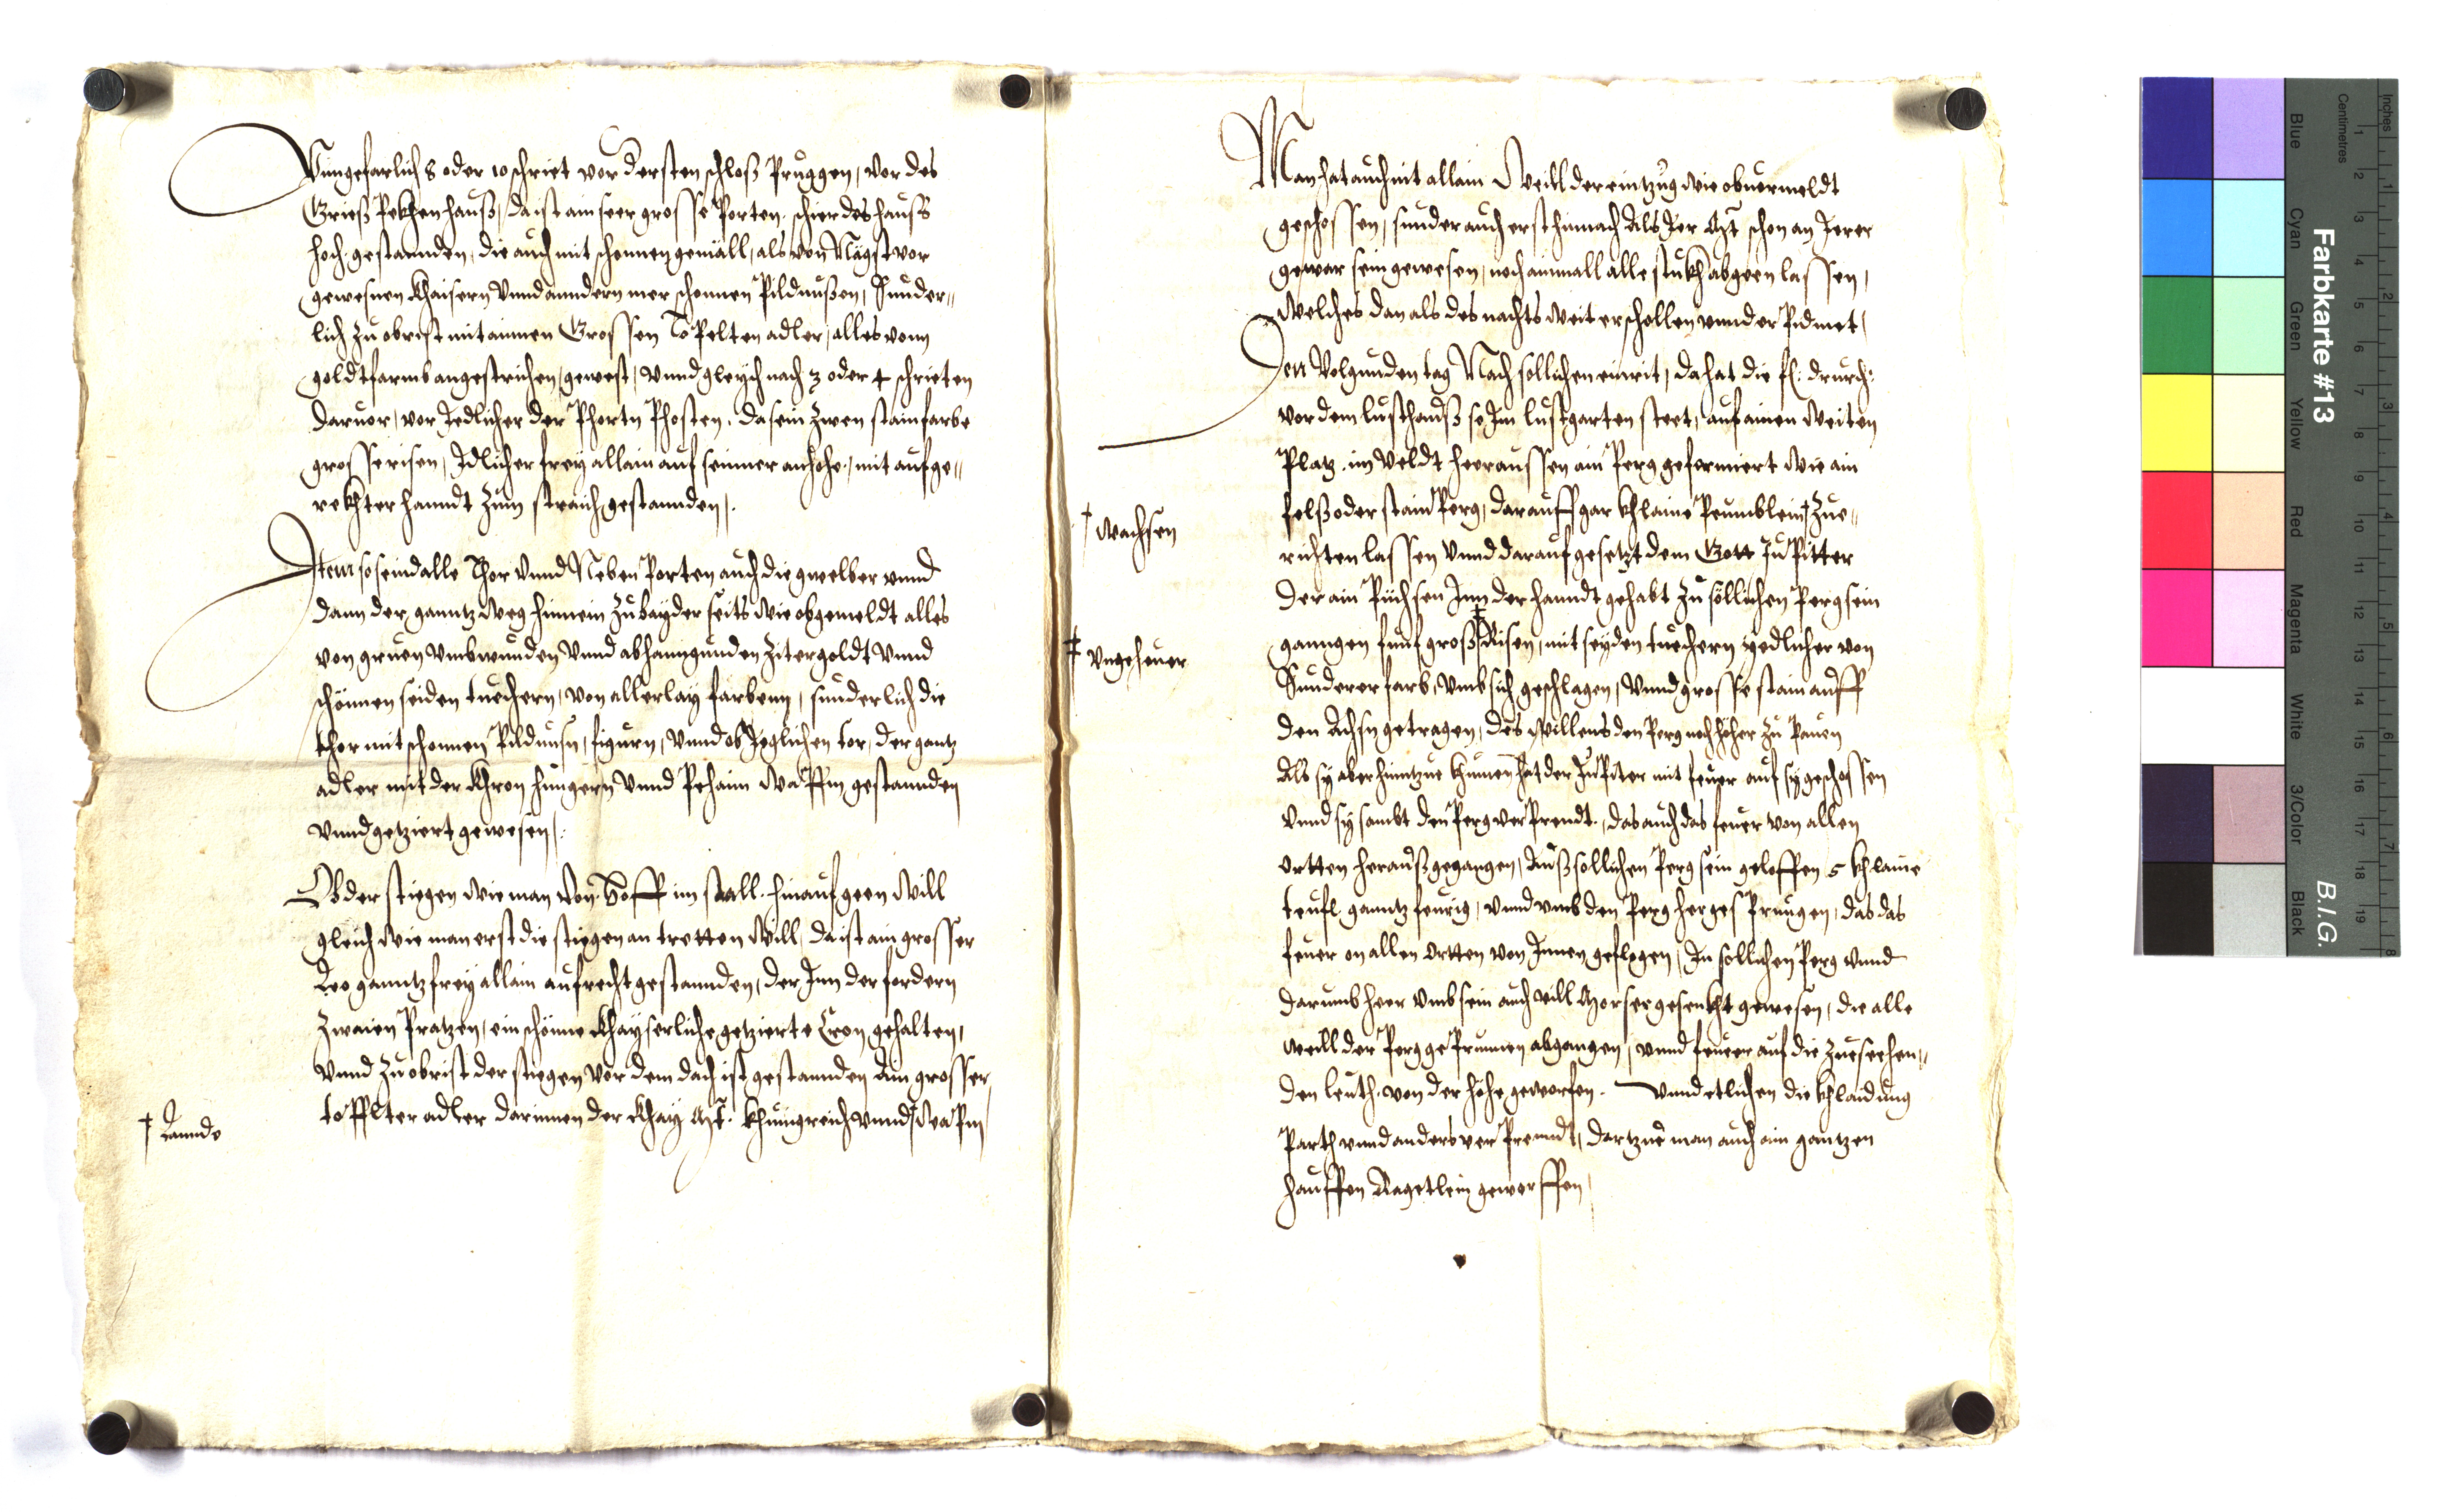 Vungefarlich 8 oder 10 schriet vor dersten schloß Pruggen, vor des
Grieß Pekhen hauß, da ist ain seer grosse Porten, schier des hauss
hoch gestannden, die auch mit schonnen gemäll, als von Nägst vor
gewesnen Khaisern Vnnd anndern mer schonnen Pildnußen, Sunder„
lich zu obrist mit ainnen Grossen ToPelten adler, alles vonn
goldtfarmb angestrichen, gewest, vnnd gleich nach 3 oder 4 schrieten
daruor, vor Jedlicher der Phortn Phosten, da sein zwen stainfarbe
grosse risen, Jdlicher frey allain auf seinner anhöhe, mit aufge„
rekhter hanndt zum straich gestannden,.
Jtem so seind alle Thor Vnnd Neben Porten auch die gwelber vnnd
dann der ganntz weg hinnein zu bayder seits wie obgemeldt alles
von gruen Vmbwunden Vnnd abhanngunden Zitergoldt Vnnd
schönnen seiden tuechern, von allerlay farbenn, sunderlich die
thor mit schonnen Pildnusn, figurn, Vnnd ob Jeglichen tor, der gantz
adler mit der Khron Hungern Vnnd Pehaim WaPffn gestannden
Vnnd getziert gewesen,.
Ob der stiegen wie man von Hoff im stall hinauf geen will
gleich wie man erst die stiegen an tretten will, da ist ain grosser
Leo ganntz frey allain aufrecht gestannden, der Jnn der fordern
zwaien Pratzen, ein schönne Khayserliche getzierte Cron gehalten,
Vnnd zu obrist der stiegen vor dem dach ist gestannden Ain grosser
toPfflter adler darinnen der Khay Mt. Khunigreich vnnd † WaPen
† Lannde
Man hat auch nit allain Weill der eintzug wie obuermeldt
geschossen, sunder auch erst hinnach Als Jer Mt schon an Jerer
gewar sein gewesen, noch ainmall alle stukh abgeen lassen,
Welches dan als des nachts weit erschollen vnnd erPidmet,
Den Volgunden tag Nach sollichen einrit, da hat die fl: drurch:
vor dem lusthauß so Jm lustgarten steet, auf ainen Weiten
Platz im Veldt heeraussen ain Perg geformiert wie ain
felß oder stain Perg, darauff gar khlaine Peumblein † zue„
richten lassen Vnnd darauf gesetzt dem Gott JuPitter
† Wachsen
Der ain Püchsen Jnn der hanndt gehabt zu söllichen Perg sein
ganngen funf groß ‡ Risen, mit seyden tuechern yedlicher von
‡ Vngeheuer
Sunderer farb, Vmb sich geschlagen, Vnnd grosse stain auff
den Achsn getragen, des Willens den Perg noch höher zu Pauen
Als sy aber hinntzue khumen hat der JuPiter mit feuer auf sy geschossen
Vnnd sy sambt den Perg verPrendt, das auch das feuer von allen
ortten herauß gegangen, Auß sollichen Perg sein geloffen 5 khlaine
teufl ganntz feurig, vnnd vmb den Perg her gesPrungen, das das
feuer on allen Ortten von Jnnen geflogen, Jn sollichen Perg vnnd
darumb heer Vmb sein auch vill Morser gesenkht gewesen, die alle
weill der Perg gePrunnen abgangen, vnnd feuer auf die zueseehen„
den leuth von der höhe geworfen. Vnnd etlichen die khlaidung
Parth vnnd anders verPrenndt, dartzue man auch ain gantzen
hauffen Ragetlein geworffen,
Farbkarte #13
B.I.G.
Inches
Centimetres
Blue
Cyan
Green
Yellow
Red
Magenta
White
3/Color
Black